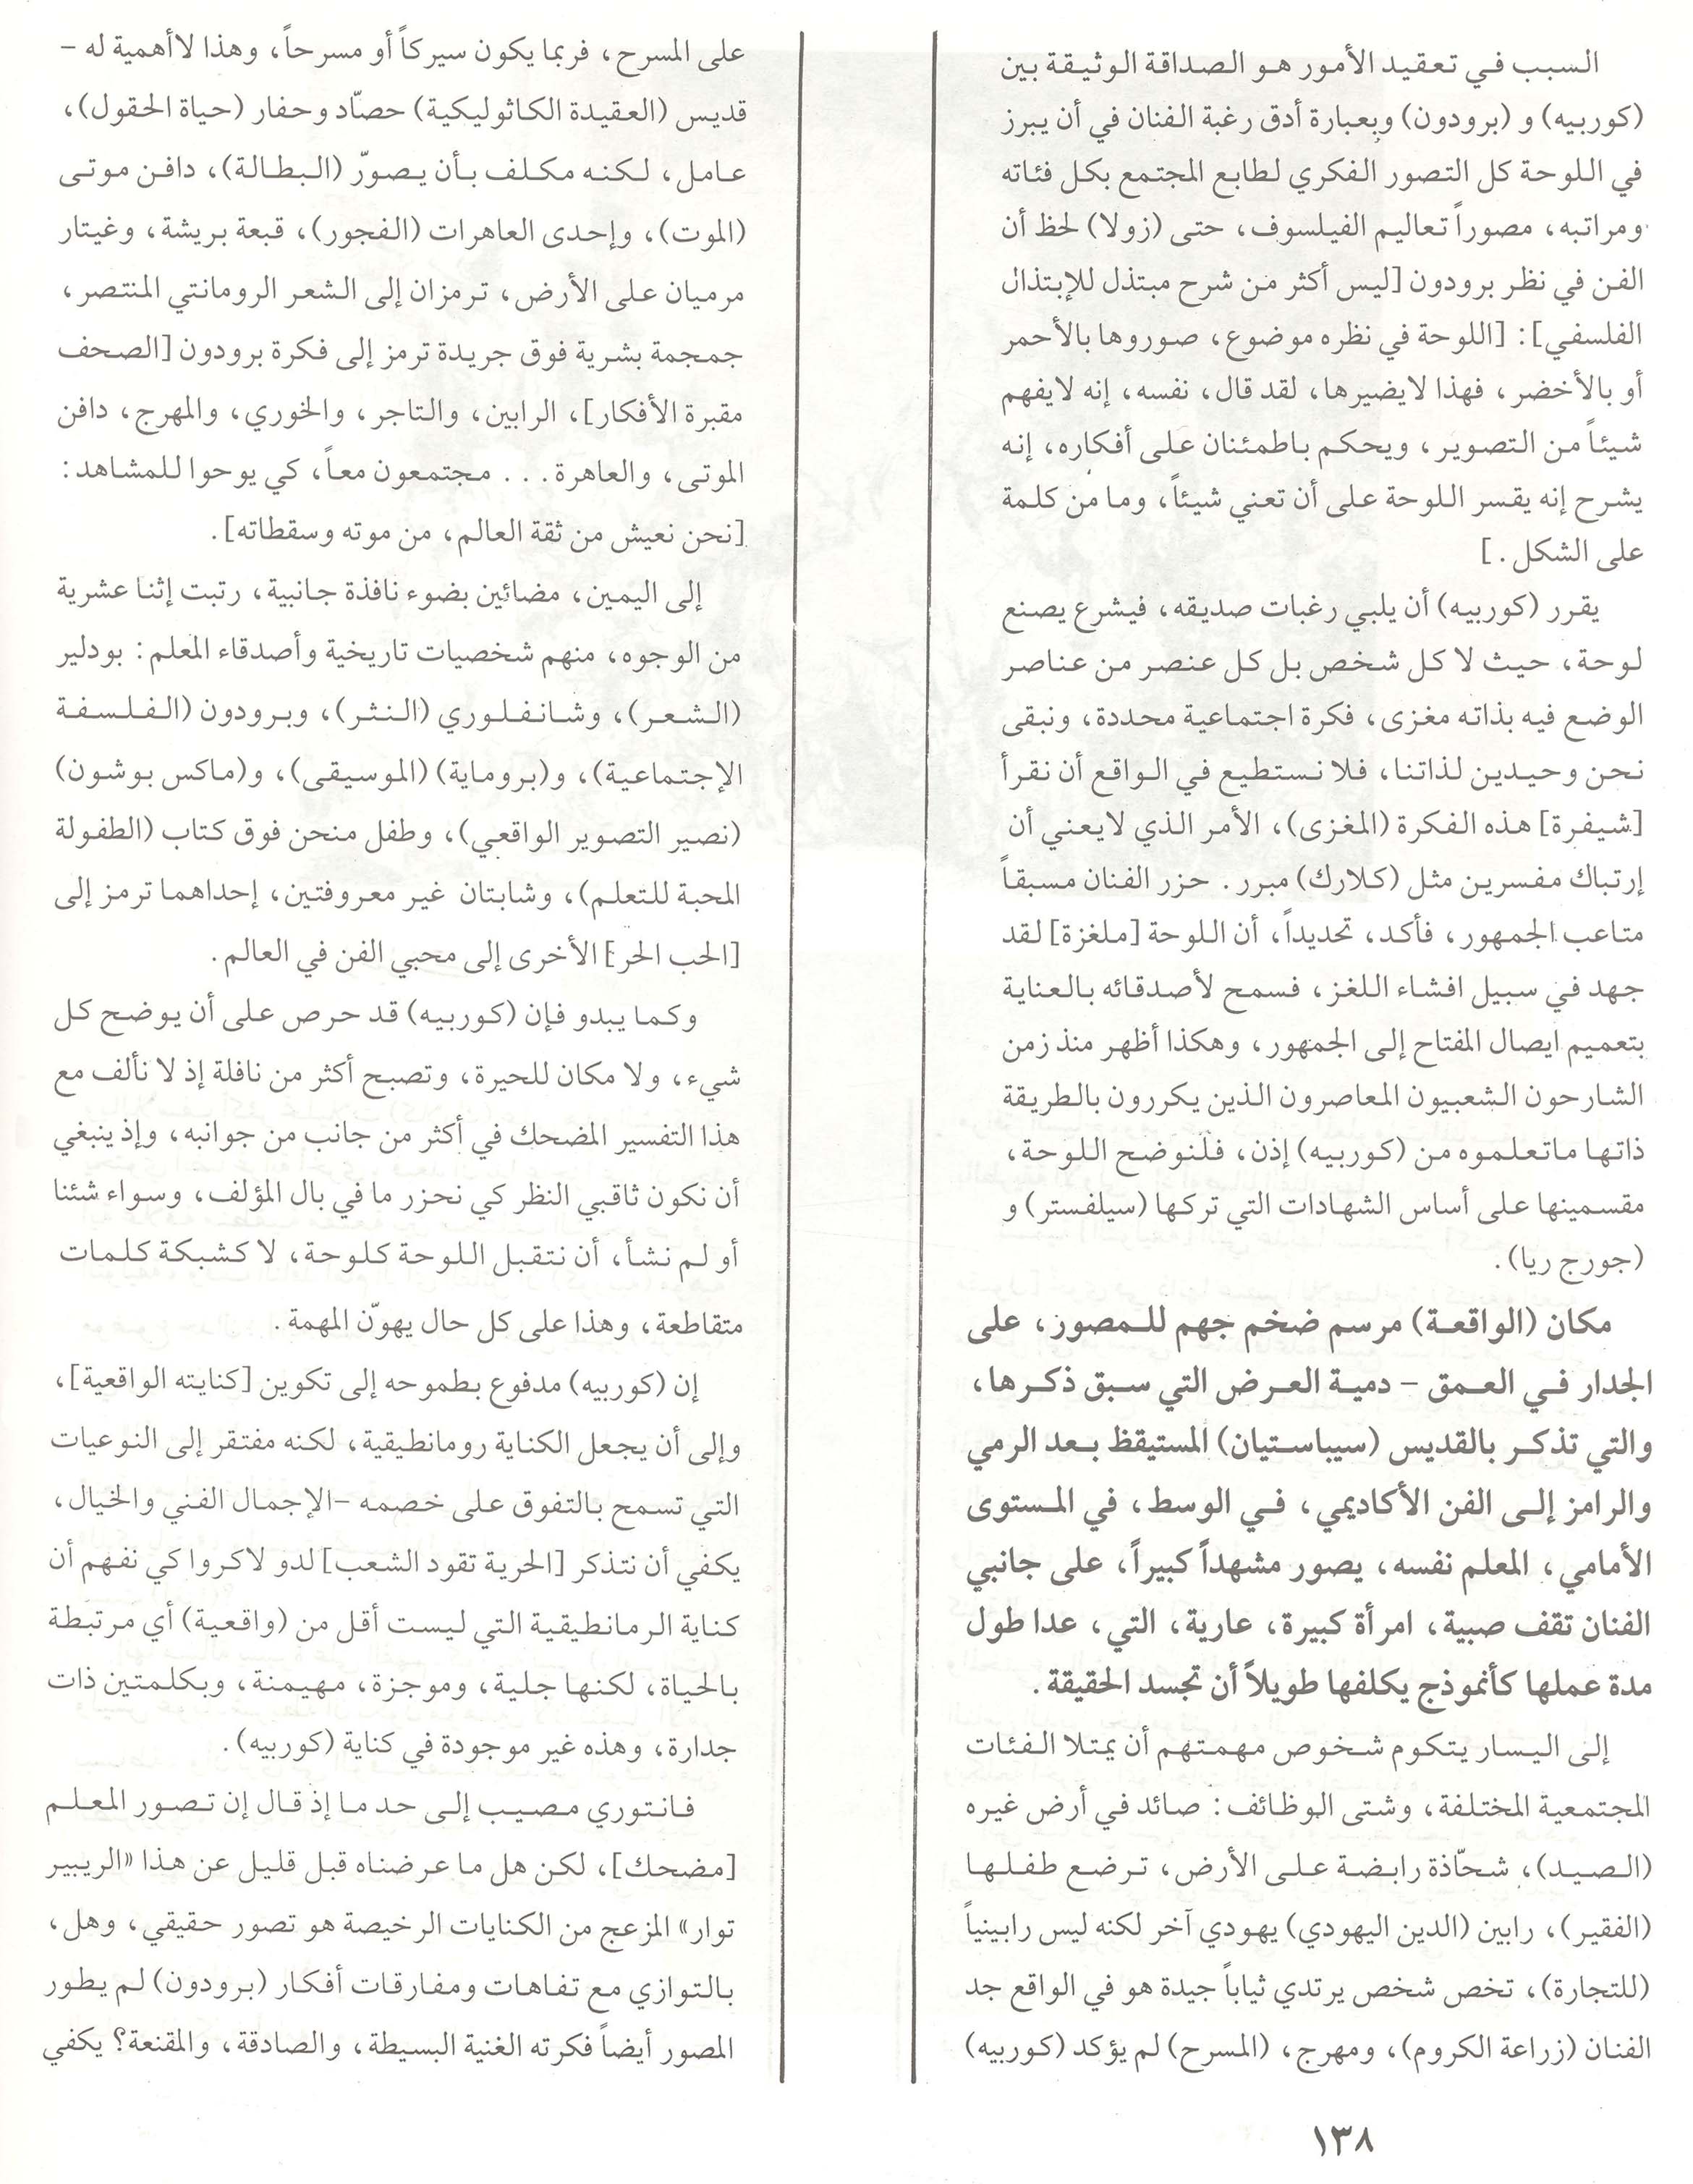 السبب في تعقيد الأمور هو الصداقة الوثيقة بين
(كوربيه) و (برودون) وبعبارة أدق رغبة الفنان في أن يبرز
في اللوحة كل التصور الفكري لطابع المجتمع بكل فئاته
ومراتبه، مصوراً تعاليم الفيلسوف، حتى (زولا) لحظ أن
الفن في نظر برودون [ليس أكثر من شرح مبتذل للإبتذال
الفلسفي]: [اللوحة في نظره موضوع، صوروها بالأحمر
أو بالأخضر، فهذا لايضيرها، لقد قال، نفسه، إنه لايفهم
شيئاً من التصوير، ويحكم باطمئنان على أفكاره، إنه
يشرح إنه يقسر اللوحة على أن تعني شيئاً، وما من كلمة
على الشكل.]
يقرر (كوربيه) أن يلبي رغبات صديقه، فيشرع يصنع
لوحة، حيث لا كل شخص بل كل عنصر من عناصر
الوضع فيه بذاته مغزى، فكرة اجتماعية محددة، ونبقى
نحن وحيدين لذاتنا، فلا نستطيع في الواقع أن نقرأ
[شيفرة] هذه الفكرة (المغزى)، الأمر الذي لايعني أن
إرتباك مفسرين مثل (كلارك) مبرر. حزر الفنان مسبقاً
متاعب الجمهور، فأكد، تحديداً، أن اللوحة [ملغزة] لقد
جهد في سبيل افشاء اللغز، فسمح لأصدقائه بالعناية
بتعميم ايصال المفتاح إلى الجمهور، وهكذا أظهر منذ زمن
الشارحون الشعبيون المعاصرون الذين يكررون بالطريقة
ذاتها ماتعلموه من (كوربيه) إذن، فلنوضح اللوحة،
مقسمينها على أساس الشهادات التي تركها (سيلفستر) و
(جورج ريا).
مكان (الواقعة) مرسم ضخم جهم للمصور، على
الجدار في العمق - دمية العرض التي سبق ذكرها،
والتي تذكر بالقديس (سيباستيان) المستيقظ بعد الرمي
والرامز إلى الفن الأكاديمي، في الوسط، في المستوى
الأمامي، المعلم نفسه، يصور مشهداً كبيراً، على جانبي
الفنان تقف صبية، امرأة كبيرة، عارية، التي، عدا طول
مدة عملها كأنموذج يكلفها طويلاً أن تجسد الحقيقة.
إلى اليسار يتكوم شخوص مهمتهم أن يمتلا الفئات
المجتمعية المختلفة، وشتى الوظائف: صائد في أرض غيره
(الصيد)، شحّاذة رابضة على الأرض، ترضع طفلها
(الفقير)، رابين (الدين اليهودي) يهودي آخر لكنه ليس رابينياً
(للتجارة)، تخص شخص يرتدي ثياباً جيدة هو في الواقع جد
الفنان (زراعة الكروم)، ومهرج، (المسرح) لم يؤكد (كوربيه)
على المسرح، فربما يكون سيركاً أو مسرحاً، وهذا لاأهمية له -
قديس (العقيدة الكاثوليكية) حصّاد وحفار (حياة الحقول)،
عامل، لكنه مكلف بأن يصورّ (البطالة)، دافن موتى
(الموت)، وإحدى العاهرات (الفجور)، قبعة بريشة، وغيتار
مرميان على الأرض، ترمزان إلى الشعر الرومانتي المنتصر،
جمجمة بشرية فوق جريدة ترمز إلى فكرة برودون [الصحف
مقبرة الأفكار]، الرابين، والتاجر، والخوري، والمهرج، دافن
الموتى، والعاهرة... مجتمعون معاً، كي يوحوا للمشاهد:
[نحن نعيش من ثقة العالم، من موته وسقطاته].
إلى اليمين، مضائين بضوء نافذة جانبية، رتبت إثنا عشرية
من الوجوه، منهم شخصيات تاريخية وأصدقاء المعلم: بودلير
(الشعر)، وشانفلوري (النثر)، وبرودون (الفلسفة
الإجتماعية)، و(بروماية) (الموسيقى)، و(ماكس بوشون)
(نصير التصوير الواقعي)، وطفل منحن فوق كتاب (الطفولة
المحبة للتعلم)، وشابتان غير معروفتين، إحداهما ترمز إلى
[الحب الحر] الأخرى إلى محبي الفن في العالم.
وكما يبدو فإن (كوربيه) قد حرص على أن يوضح كل
شيء، ولا مكان للحيرة، وتصبح أكثر من نافلة إذ لا نألف مع
هذا التفسير المضحك في أكثر من جانب من جوانبه، وإذ ينبغي
أن نكون ثاقبي النظر كي نحزر ما في بال المؤلف، وسواء شئنا
أو لم نشأ، أن نتقبل اللوحة كلوحة، لا كشبكة كلمات
متقاطعة، وهذا على كل حال يهوّن المهمة.
إن (كوربيه) مدفوع بطموحه إلى تكوين [كنايته الواقعية]،
وإلى أن يجعل الكناية رومانطيقية، لكنه مفتقر إلى النوعيات
التي تسمح بالتفوق على خصمه -الإجمال الفني والخيال،
يكفي أن نتذكر [الحرية تقود الشعب] لدو لاكروا كي نفهم أن
كناية الرمانطيقية التي ليست أقل من (واقعية) أي مرتبطة
بالحياة، لكنها جلية، وموجزة، مهيمنة، وبكلمتين ذات
جدارة، وهذه غير موجودة في كناية (كوربيه).
فانتوري مصيب إلى حد ما إذ قال إن تصور المعلم
[مضحك]، لكن هل ما عرضناه قبل قليل عن هذا «الريبير
توار» المزعج من الكنايات الرخيصة هو تصور حقيقي، وهل،
بالتوازي مع تفاهات ومفارقات أفكار (برودون) لم يطور
المصور أيضاً فكرته الغنية البسيطة، والصادقة، والمقنعة؟ يكفي
١٣٨